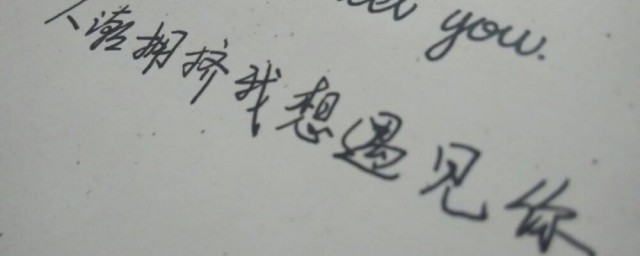 you.
人潮拥挤我想遇见你